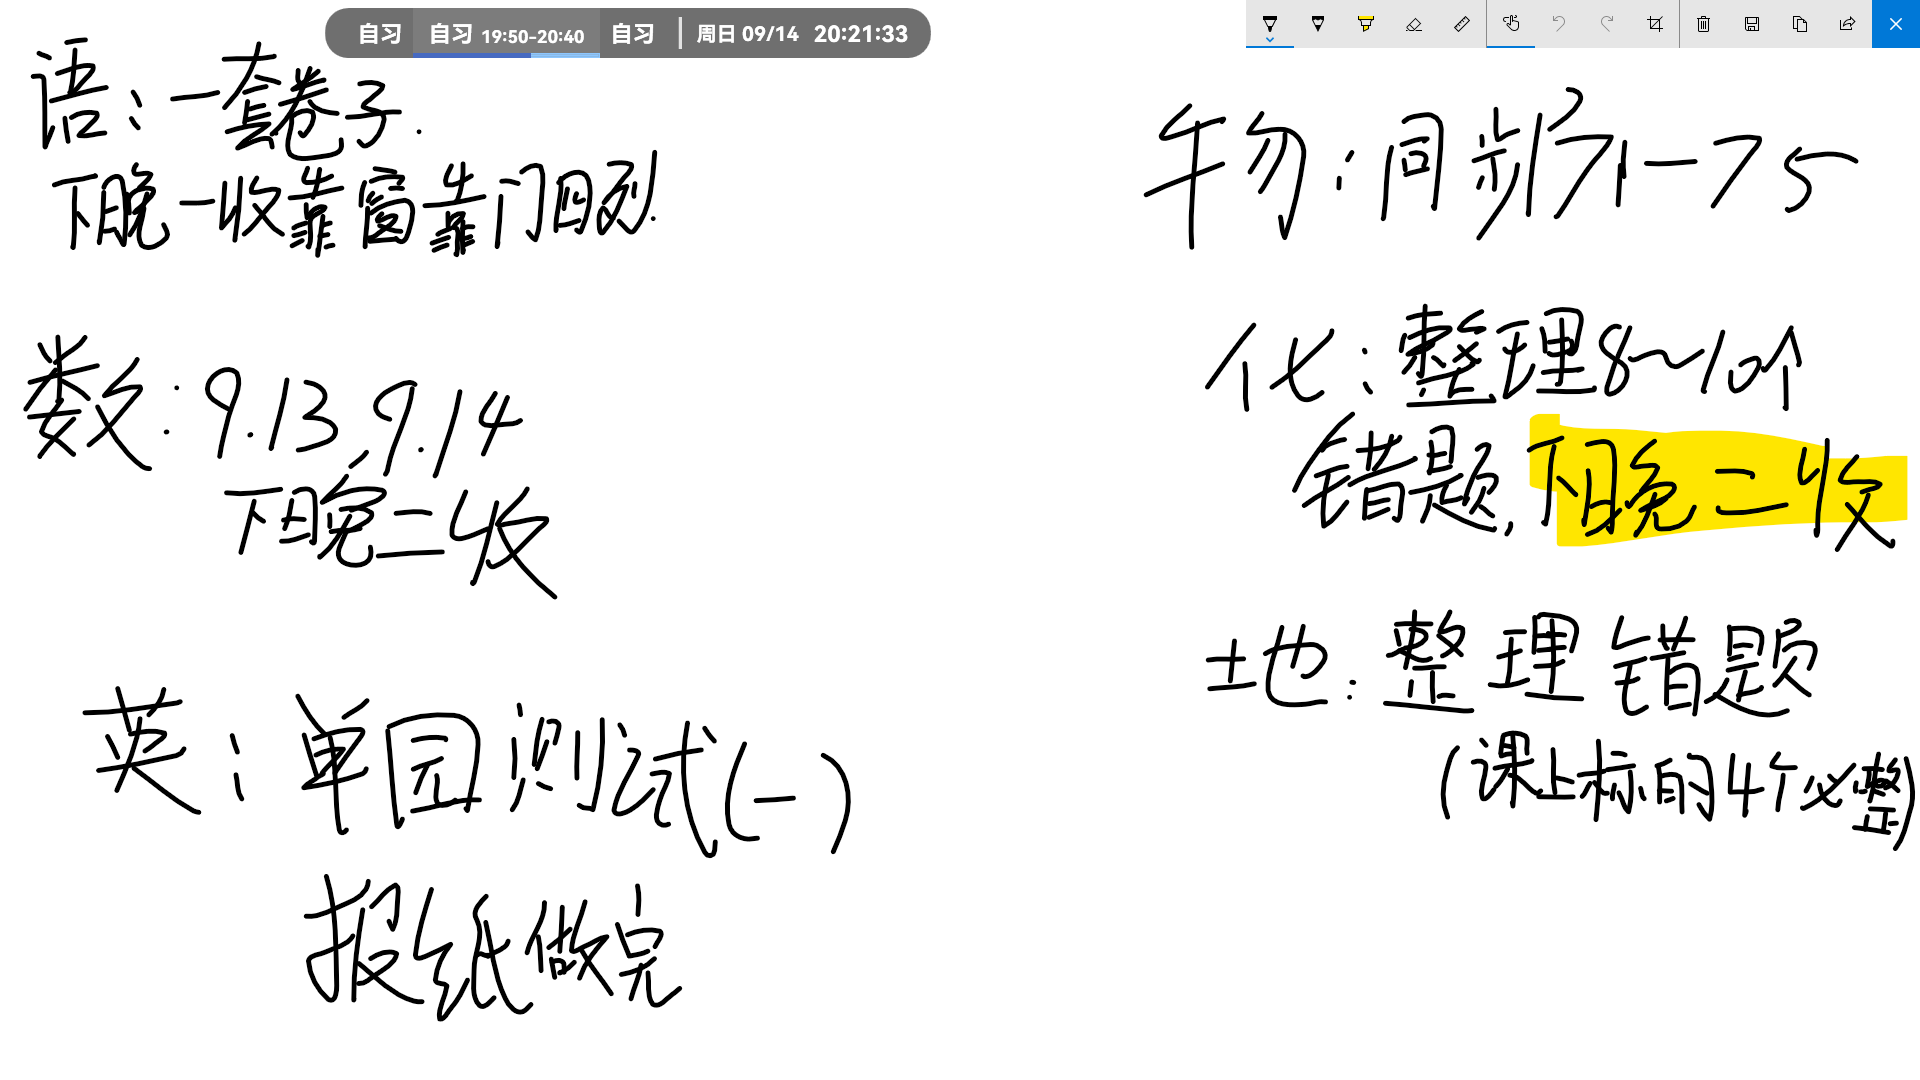 自习 自习 19:50-20:40 自习 周日 09/14 20:21:33
语:一套卷子.
下晚一收靠窗靠门四列.
数:9.13,9.14
下晚二收
英:单园测试(一)
报纸做完
物:同步71-75
化:整理8~10个
错题,下晚二收
地:整理错题
(课上标的4个必整)